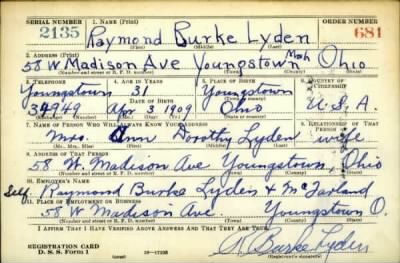 SERIAL NUMBER 1. NAME (Print) ORDER NUMBER
2135 Raymond Burke Lyden 681
(First) (Middle) (Last)
2. ADDRESS (Print)
58 W Madison Ave Youngstown Mah Ohio
(Number and street or R. F. D. number) (Town) (County) (State)
3. TELEPHONE 4. AGE IN YEARS 5. PLACE OF BIRTH 6. COUNTRY OF CITIZENSHIP
Youngstown 31 Youngstown
(Exchange) DATE OF BIRTH (Town or county)
34949 Apr 3 1909 Ohio U.S.A.
(Number) (Mo.) (Day) (Yr.) (State or country)
7. NAME OF PERSON WHO WILL ALWAYS KNOW YOUR ADDRESS 8. RELATIONSHIP OF THAT PERSON
Mrs. Ann Dorothy Lyden wife
(Mr., Mrs., Miss) (First) (Middle) (Last)
9. ADDRESS OF THAT PERSON
58 W. Madison Ave Youngstown, Ohio
(Number and street or R. F. D. number) (Town) (County) (State)
10. EMPLOYER'S NAME
Self Raymond Burke Lyden & McFarland
11. PLACE OF EMPLOYMENT OR BUSINESS
58 W Madison Ave. Youngstown O.
(Number and street or R. F. D. number) (Town) (County) (State)
I AFFIRM THAT I HAVE VERIFIED ABOVE ANSWERS AND THAT THEY ARE TRUE.
REGISTRATION CARD
D. S. S. Form 1 16-17105 R Burke Lyden
(Registrant's signature)